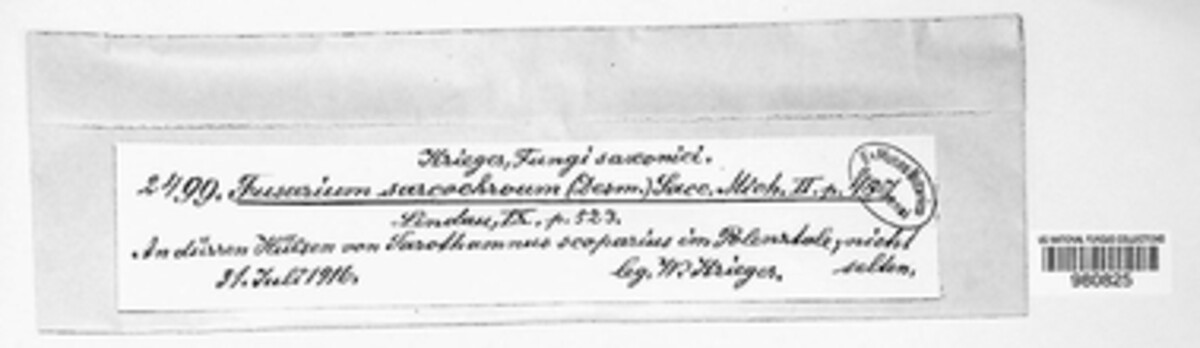 Krieger, Fungi saxonici.
2499. Fusarium sarcochroum (Desm.) Sacc. Mich. II. p.
Lindau, IX. p. 523.
An dürren Hülsen von Sarothamnus scoparius im Polenztale, nicht
selten.
31. Juli 1916. leg. W. Krieger.
US NATIONAL FUNGUS COLLECTIONS
980825